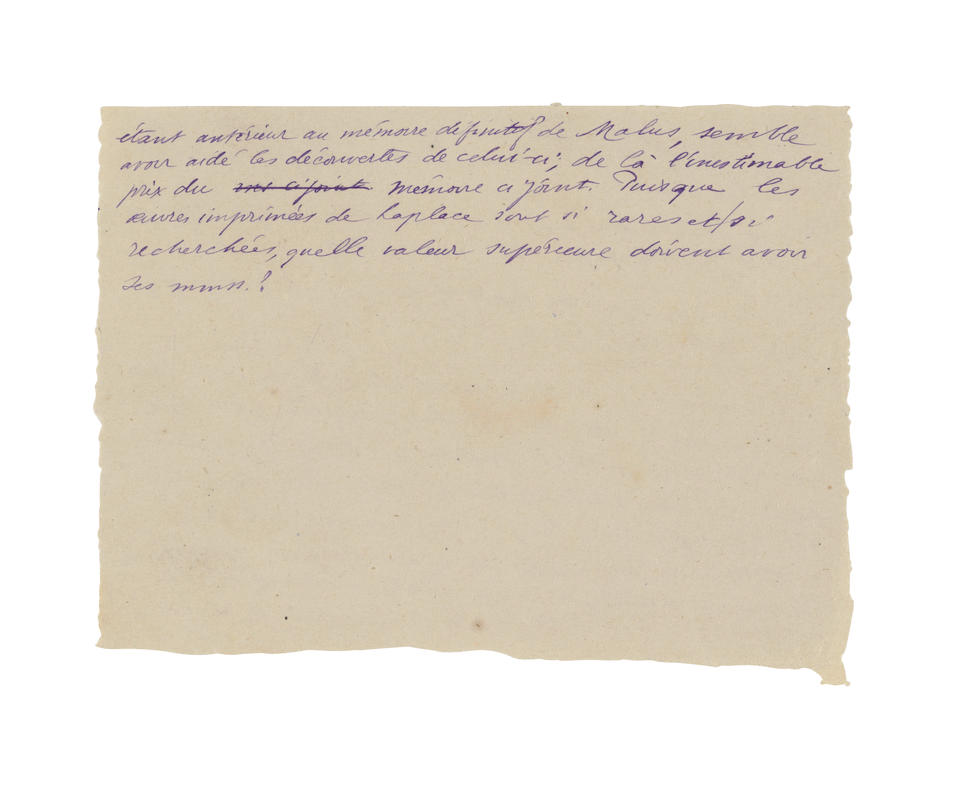 étant antérieur au mémoire définitif de Malus, semble
avoir aidé les découvertes de celui-ci; de là l'inestimable
prix du ms ci joint mémoire ci joint. Puisque les
œuvres imprimées de Laplace sont si rares et si
recherchées, quelle valeur supérieure doivent avoir
ses mnss.?